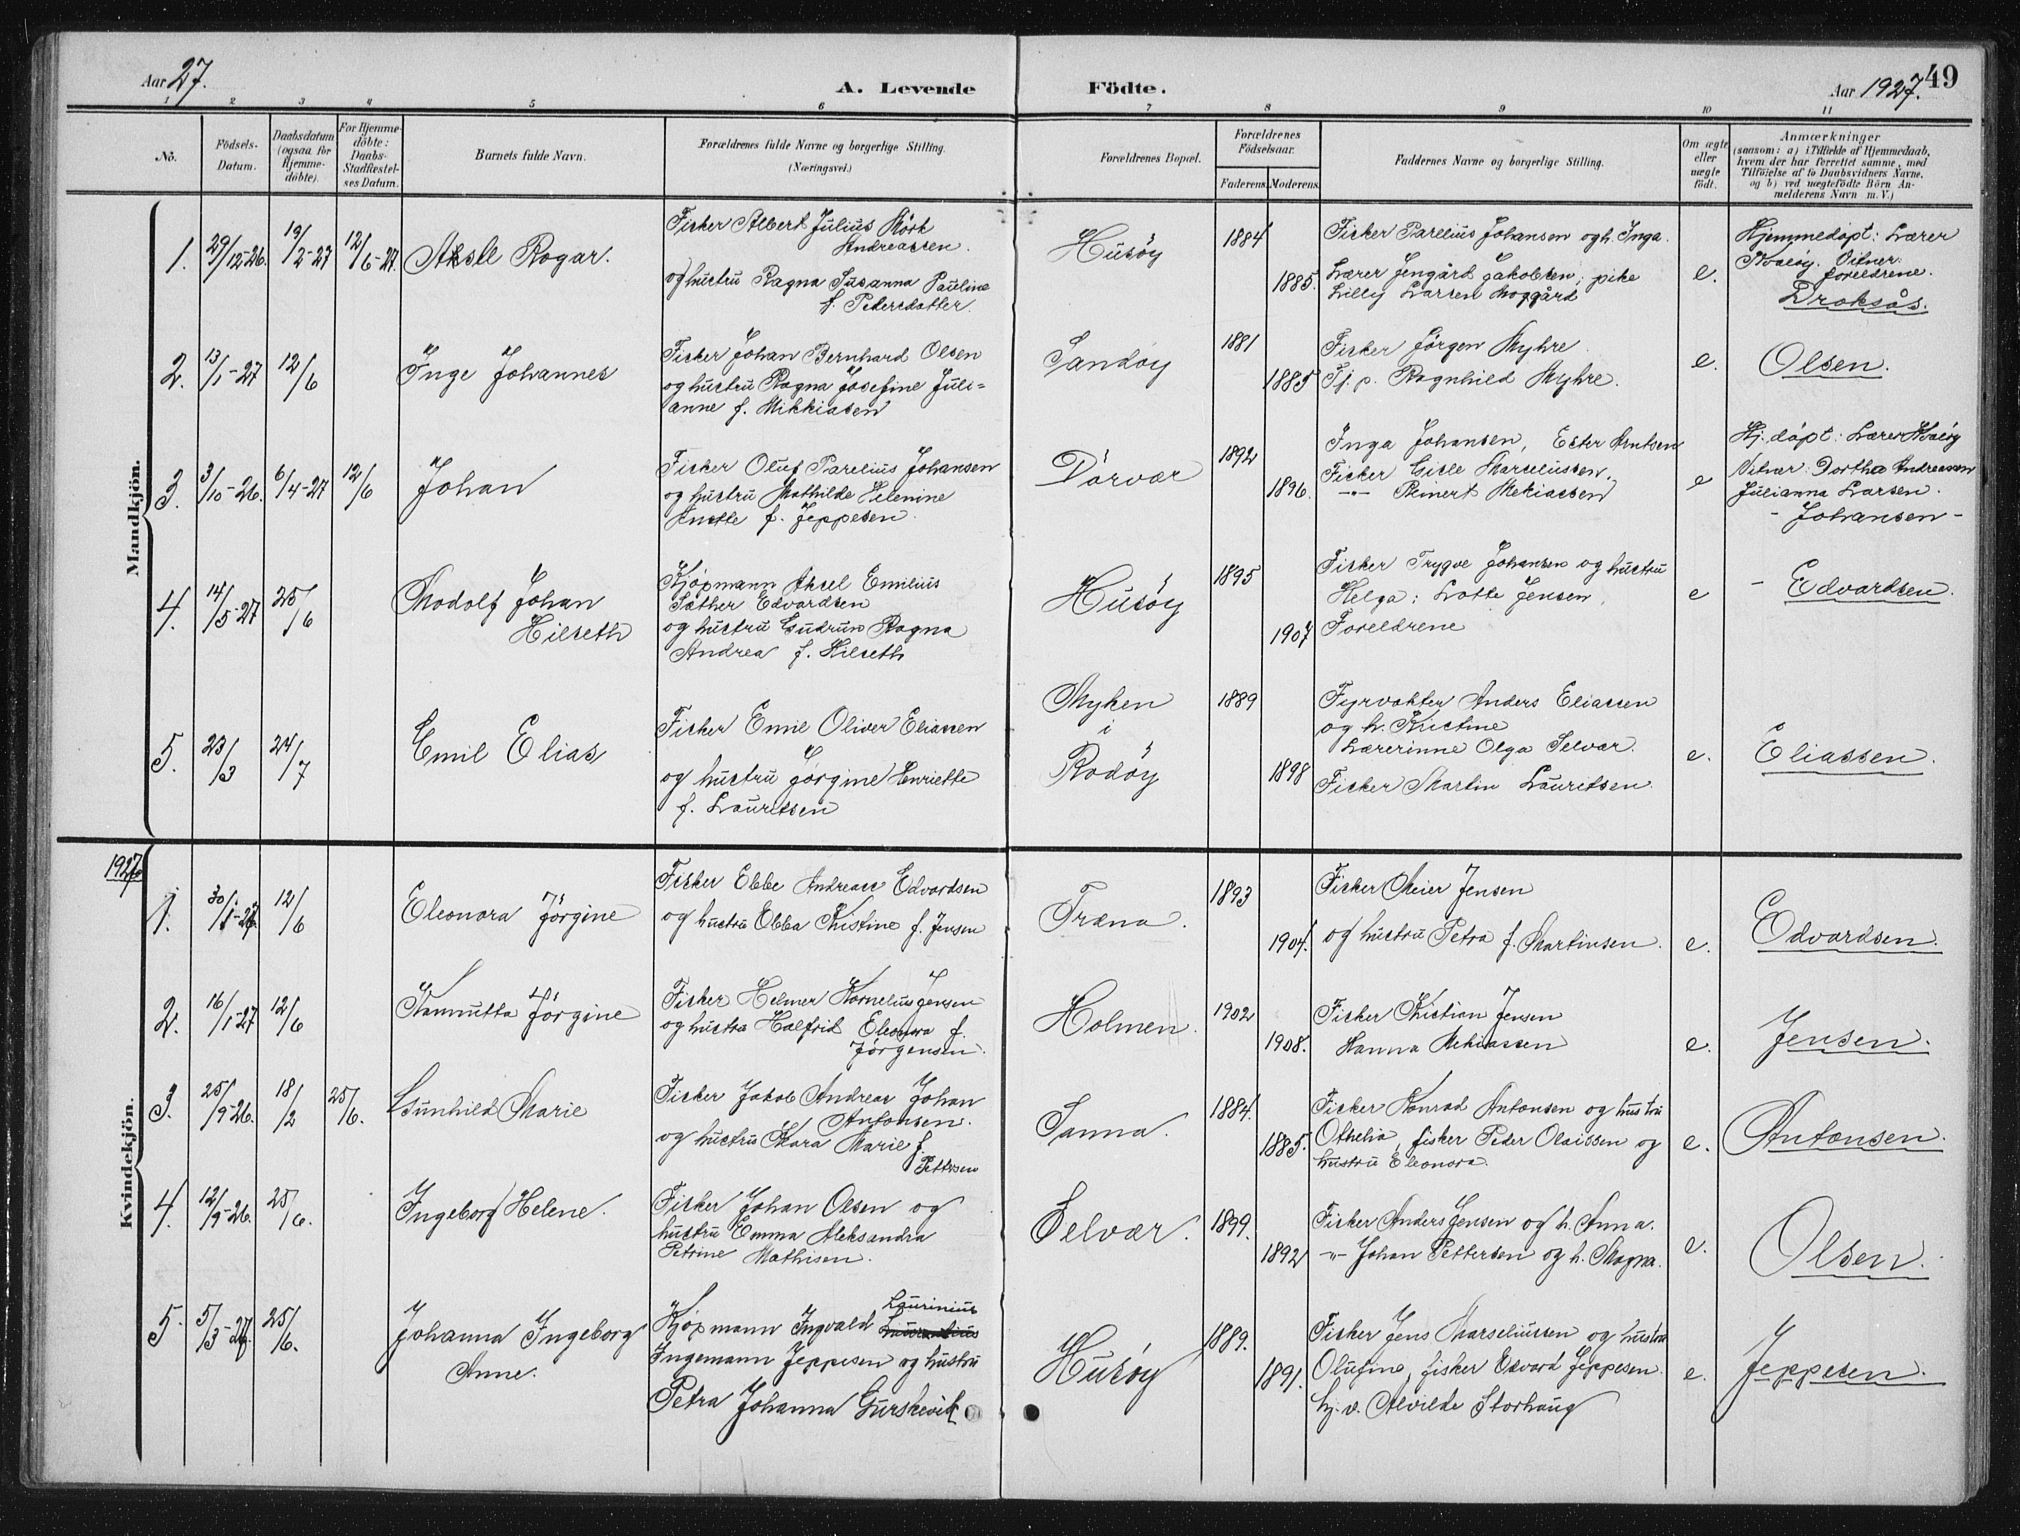 Aar 27.
A. Levende Födte.
Aar 1927. 49
1 2 3 4 5 6 7 8 9 10 11
No.
Födsels-Datum.
Daabsdatum (ogsaa for Hjemme-döbte).
For Hjemme-döbte: Daabs-Stadfæstel-ses Datum.
Barnets fulde Navn.
Forældrenes fulde Navne og borgerlige Stilling.
(Næringsvei.)
Forældrenes Bopæl.
Forældrenes Födselsaar.
Faderens. Moderens.
Faddernes Navne og borgerlige Stilling.
Om ægte eller uægte födt.
Anmærkninger
(saasom: a) i Tilfælde af Hjemmedaab, hvem der har forrettet samme, med Tilföielse af to Daabsvidners Navne, og b) ved uægtefödte Börn An-melderens Navn m. V.)
Mandkjön.
1. 29/12-26. 19/2-27 12/6-27. Aksle Rogar.
Fisker Albert Julius Mörk
Andreassen.
og hustru Ragna Susanna Pauline
f. Pedersdatter.
Husöy
1884
1885.
Fisker Parelius Johansen og h. Inga.
Lærer Jengård Jakobsen, pike
Lilly Larsen Moggård
e.
Hjemmedöpt: Lærer
Kvalöy. Vitner:
foreldrene.
Draksås.
2. 13/1-27 12/6 Inge Johannes
Fisker Johan Bernhard Olsen
og hustru Ragna Josefine Juli=
anne f. Mikkiasen
Sandöy
1881
1885
Fisker Jörgen Myhre.
Tj. p. Ragnhild Myhre.
e.
Olsen.
3. 3/10-26. 6/4-27 12/6 Johan
Fisker Oluf Parelius Johansen
og hustru Mathilde Helenine
Anette f. Jeppesen.
Dörvær
1892
1896.
Inga Johansen, Ester Arntsen
Fisker Gisle Marseliussen,
-"- Reinert Mekiassen
e
Hj. döpt: Lærer Kvalöy
Vitner: Dorthea Andreassen
Julianna Larsen.
- Johansen -
4. 14/5-27 25/6 Modolf Johan
Hilseth
Kjöpmann Aksel Emilius
Sæther Edvardsen
og hustru Gudrun Ragna
Andrea f. Hilseth
Husöy
1895
1907
Fisker Trygve Johansen og hustru
Helga: Lotte Jensen,
Foreldrene
e
- Edvardsen.
5. 23/3 24/7 Emil Elias
Fisker Emil Oliver Eliassen
og hustru Jörgine Henriette
f. Lauritsen
Myken
i
Rödöy
1889
1898
Fyrvokter Anders Eliassen
og h. Kristine
Lærerinne Olga Selvær.
Fisker Martin Lauritsen
e.
Eliassen.
1927
Kvindekjön.
1. 30/1-27 12/6 Eleonora Jörgine
Fisker Ebbe Andreas Edvardsen
og hustru Ebba Kristine f. Jensen
Træna.
1893
1904.
Fisker Meier Jensen
og hustru Petra f. Martinsen.
e.
Edvardsen.
2. 16/1-27 12/6 Kamutta Jörgine
Fisker Helmer Kornelius Jensen
og hustru Halfrid Eleonora f.
Jörgensen.
Holmen.
1902
1908.
Fisker Kristian Jensen
Hanna Mekiassen
e.
Jensen.
3. 25/9-26. 18/2 25/6. Gunhild Marie
Fisker Jakob Andreas Johan
Antonsen.
og hustru Kara Marie f.
Pettersen
Sanna.
1884.
1885.
Fisker Konrad Antonsen og hustru
Othelia, fisker Peder Olaissen og
hustru Eleonora.
e.
Antonsen.
4. 12/9-26. 25/6. Ingeborg Helene.
Fisker Johan Olsen og
hustru Emma Aleksandra
Petrine Mathisen.
Selvær.
1899.
1892
Fisker Anders Jensen og h. Anna.
-"- Johan Pettersen og h. Magna.
e.
Olsen.
5. 5/3-27. 25/6. Johanna Ingeborg
Anne.
Laurinius
Kjöpmann Ingvald
Ingemann Jeppesen og hustru
Petra Johanna Gurskevik
Husöy
1889.
1891.
Fisker Jens Marseliussen og hustru
Olufine, fisker Edvard Jeppesen.
hj. v. Alvilde Storhaug
e.
Jeppesen.